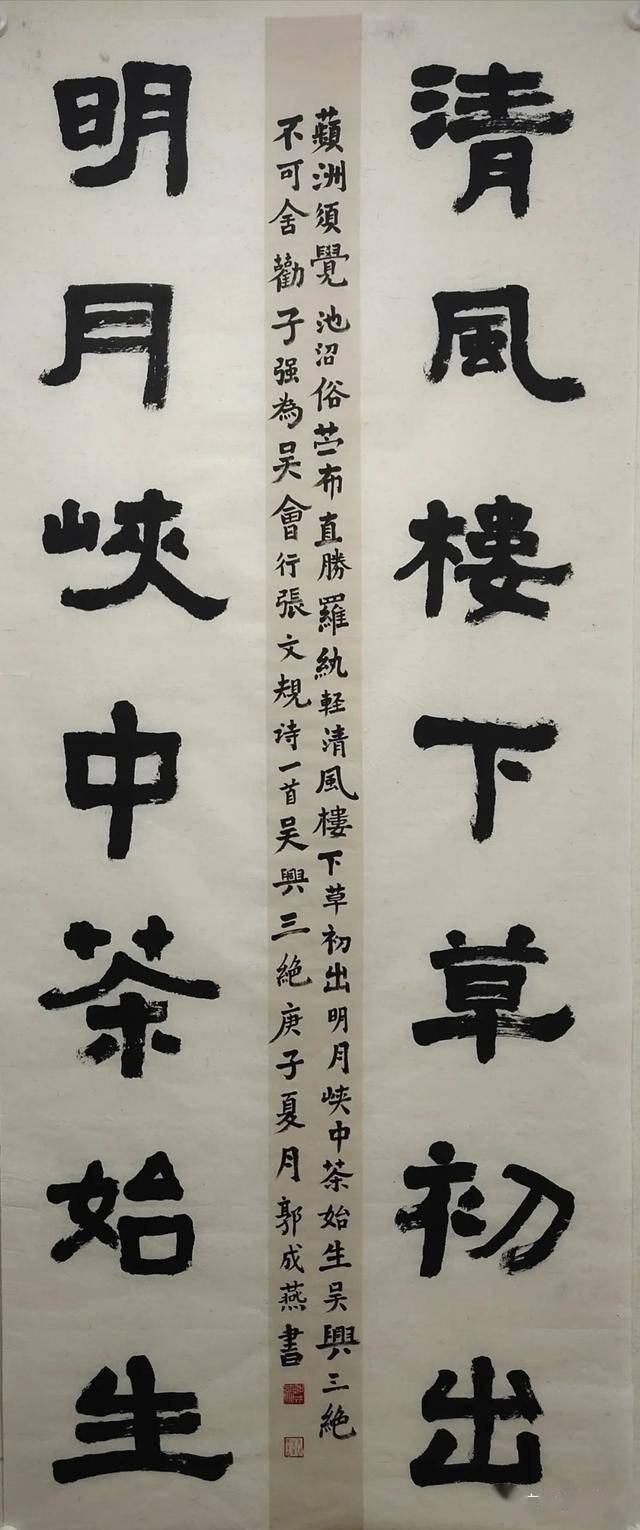 清風樓下草初出
蘋洲須覺池沼俗苎布直勝羅紈輕清風樓下草初出明月峽中茶始生吴興三絕
不可舍勸子强為吴會行張文規诗一首吴興三絕庚子夏月郭成燕書
明月峽中茶始生